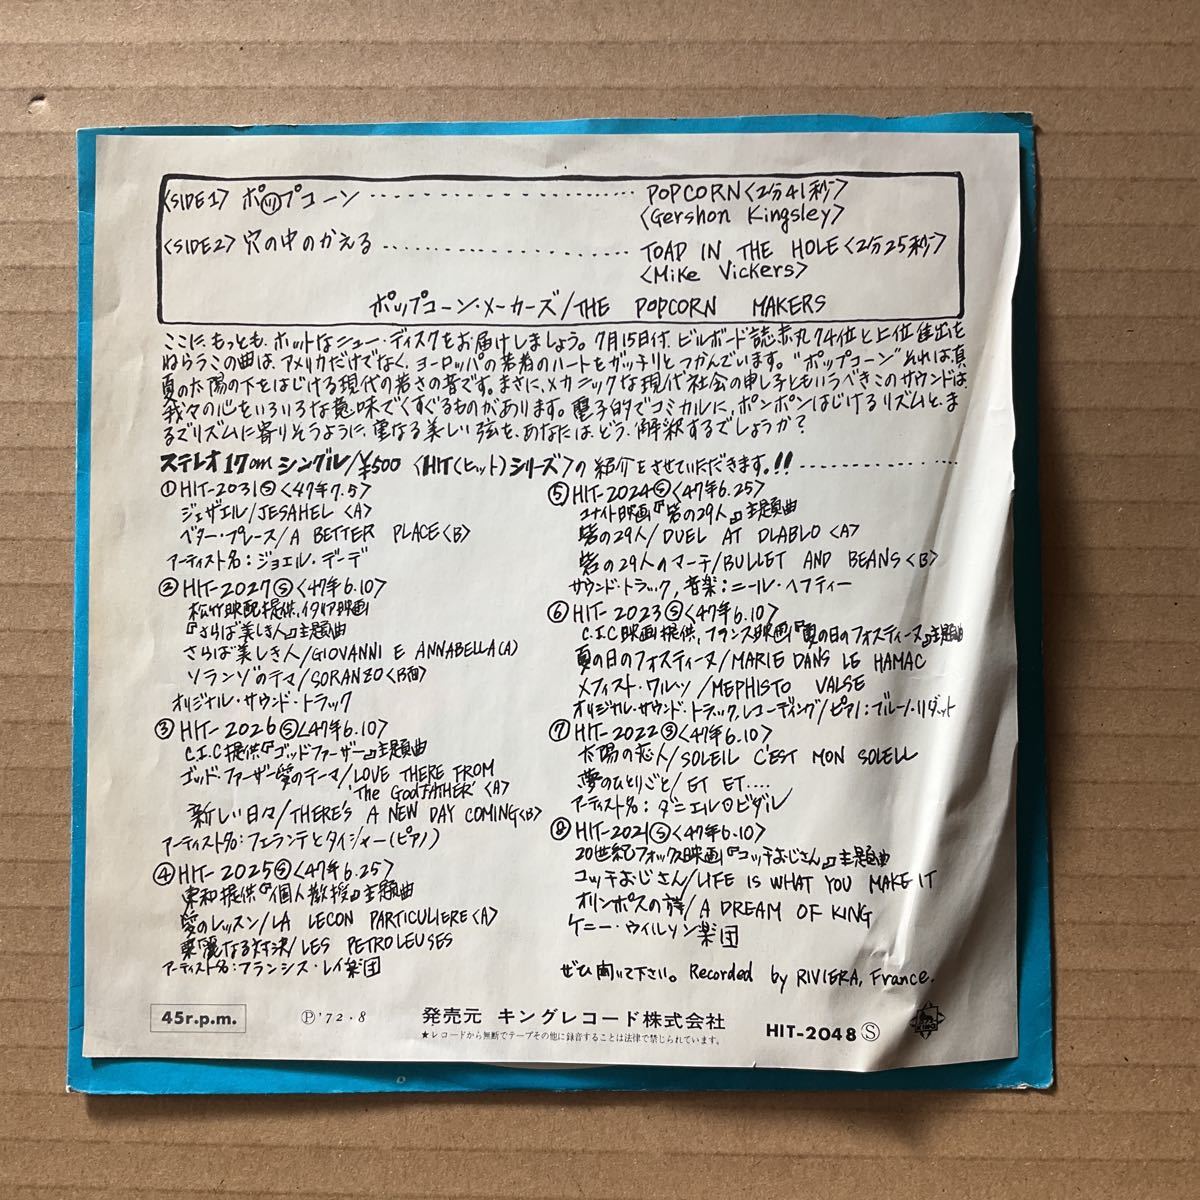 <SIDE1> ポップコーン POPCORN <2分41秒>
<Gershon Kingsley>
<SIDE2> 穴の中のかえる TOAD IN THE HOLE <2分25秒>
<Mike Vickers>
ポップコーン・メーカーズ/THE POPCORN MAKERS
ここに、もっとも、ホットなニュー・ディスクをお届けしましょう。7月15日付、ビルボード誌赤丸74位と上位進出を
ねらうこの曲は、アメリカだけでなく、ヨーロッパの若者のハートをガッチリとつかんでいます。"ポップコーン"それは、真
夏の太陽の下をはじける現代の若さの音です。まさに、メカニックな現代社会の申し子ともいうべきこのサウンドは、
我々の心をいろいろな意味でくすぐるものがあります。電子的でコミカルに、ポンポンはじけるリズムと、ま
るでリズムに寄りそうように、重なる美しい弦を、あなたは、どう、解釈するでしょうか?
ステレオ17cmシングル/¥500 <HIT(ヒット)シリーズ>の紹介をさせていただきます。!!
①HIT-2031Ⓢ<47年7.5>
ジェザエル/JESAHEL <A>
ベター・プレース/A BETTER PLACE<B>
アーティスト名:ジョエル・デーデ
②HIT-2027Ⓢ<47年6.10>
松竹映配提供、イタリア映画
『さらば美しき人』主題曲
さらば美しき人/GIOVANNI E ANNABELLA(A)
ソランゾのテマ/SORANZO<B面>
オリジナル・サウンド・トラック
③HIT-2026Ⓢ<47年6.10>
C.I.C提供『ゴッドファーザー』主題曲
ゴッド・ファーザー愛のテーマ/LOVE THERE FROM
'The GodFATHER' <A>
新しい日々/THERE'S A NEW DAY COMING<B>
アーティスト名:フェランテとタイジャー(ピアノ)
④HIT-2025Ⓢ<47年6.25>
東和提供『個人教授』主題曲
愛のレッスン/LA LECON PARTICULIERE<A>
華麗なる対決/LES PETROLEUSES
アーティスト名:フランシス・レイ楽団
⑤HIT-2024Ⓢ<47年6.25>
ユナイト映画『砦の29人』主題曲
砦の29人/DUEL AT DIABLO <A>
砦の29人のマーチ/BULLET AND BEANS<B>
サウンド・トラック、音楽:ニール・ヘフティー
⑥HIT-2023Ⓢ<47年6.10>
C.I.C映画提供、フランス映画『夏の日のフォスティーヌ』主題曲
夏の日のフォスティーヌ/MARIE DANS LE HAMAC
メフィスト・ワルツ/MEPHISTO VALSE
オリジナル・サウンド・トラック、レコーディング/ピアノ:ブルーノ・リグット
⑦HIT-2022Ⓢ<47年6.10>
太陽の恋人/SOLEIL C'EST MON SOLELL
夢のひとりごと/ET ET....
アーティスト名:ダニエル・ビダル
⑧HIT-2021Ⓢ<47年6.10>
20世紀フォックス映画『コッチおじさん』主題曲
コッチおじさん/LIFE IS WHAT YOU MAKE IT
オリンポスの詩/A DREAM OF KING
ケニー・ウィルソン楽団
ぜひ聞いて下さい。Recorded by RIVIERA, France.
45r.p.m.
Ⓟ'72・8
発売元 キングレコード株式会社
★レコードから無断でテープその他に録音することは法律で禁じられています。
HIT-2048Ⓢ